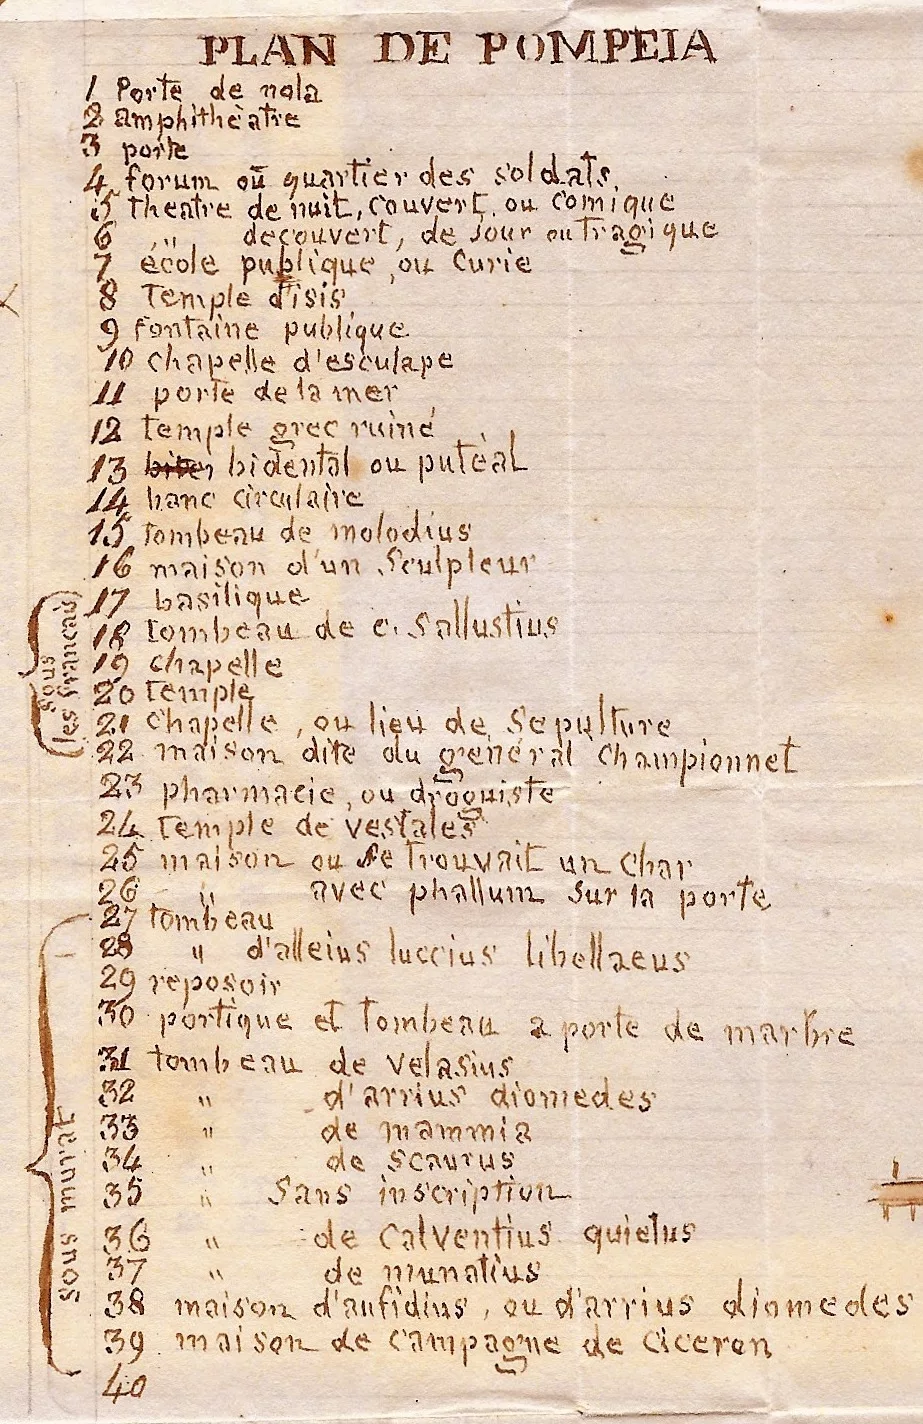 PLAN DE POMPEIA
1 Porte de nola
2 amphithèatre
3 porte
4 forum oū quartier des soldats.
5 theatre de nuit, couvert, ou comique
6 ,, " decouvert, de jour ou tragique
7 école publique, ou Curie
8 Temple d'isis
9 fontaine publique
10 chapelle d'esculape
11 porte de la mer
12 temple grec ruiné
13 bidental ou putèal
14 banc circulaire
15 tombeau de molodius
16 maison d'un Sculpteur
17 basilique
18 tombeau de c. Sallustius
19 chapelle
20 temple
21 chapelle, ou lieu de Sepulture
22 maison dite du general Championnet
sous
les français
23 pharmacie, ou droguiste
24 temple de vestales
25 maison ou se trouvait un char
26 " avec phallum sur la porte
27 tombeau
28 " d'alleius luccius libellaeus
29 reposoir
30 portique et tombeau a porte de marbre
31 tombeau de velasius
32 " d'arrius diomedes
33 " de mammia
34 " de scaurus
35 " Sans inscription
36 " de calventius quietus
37 " de munatius
38 maison d'aufidius, ou d'arrius diomedes
39 maison de campagne de Ciceron
40
sous murat